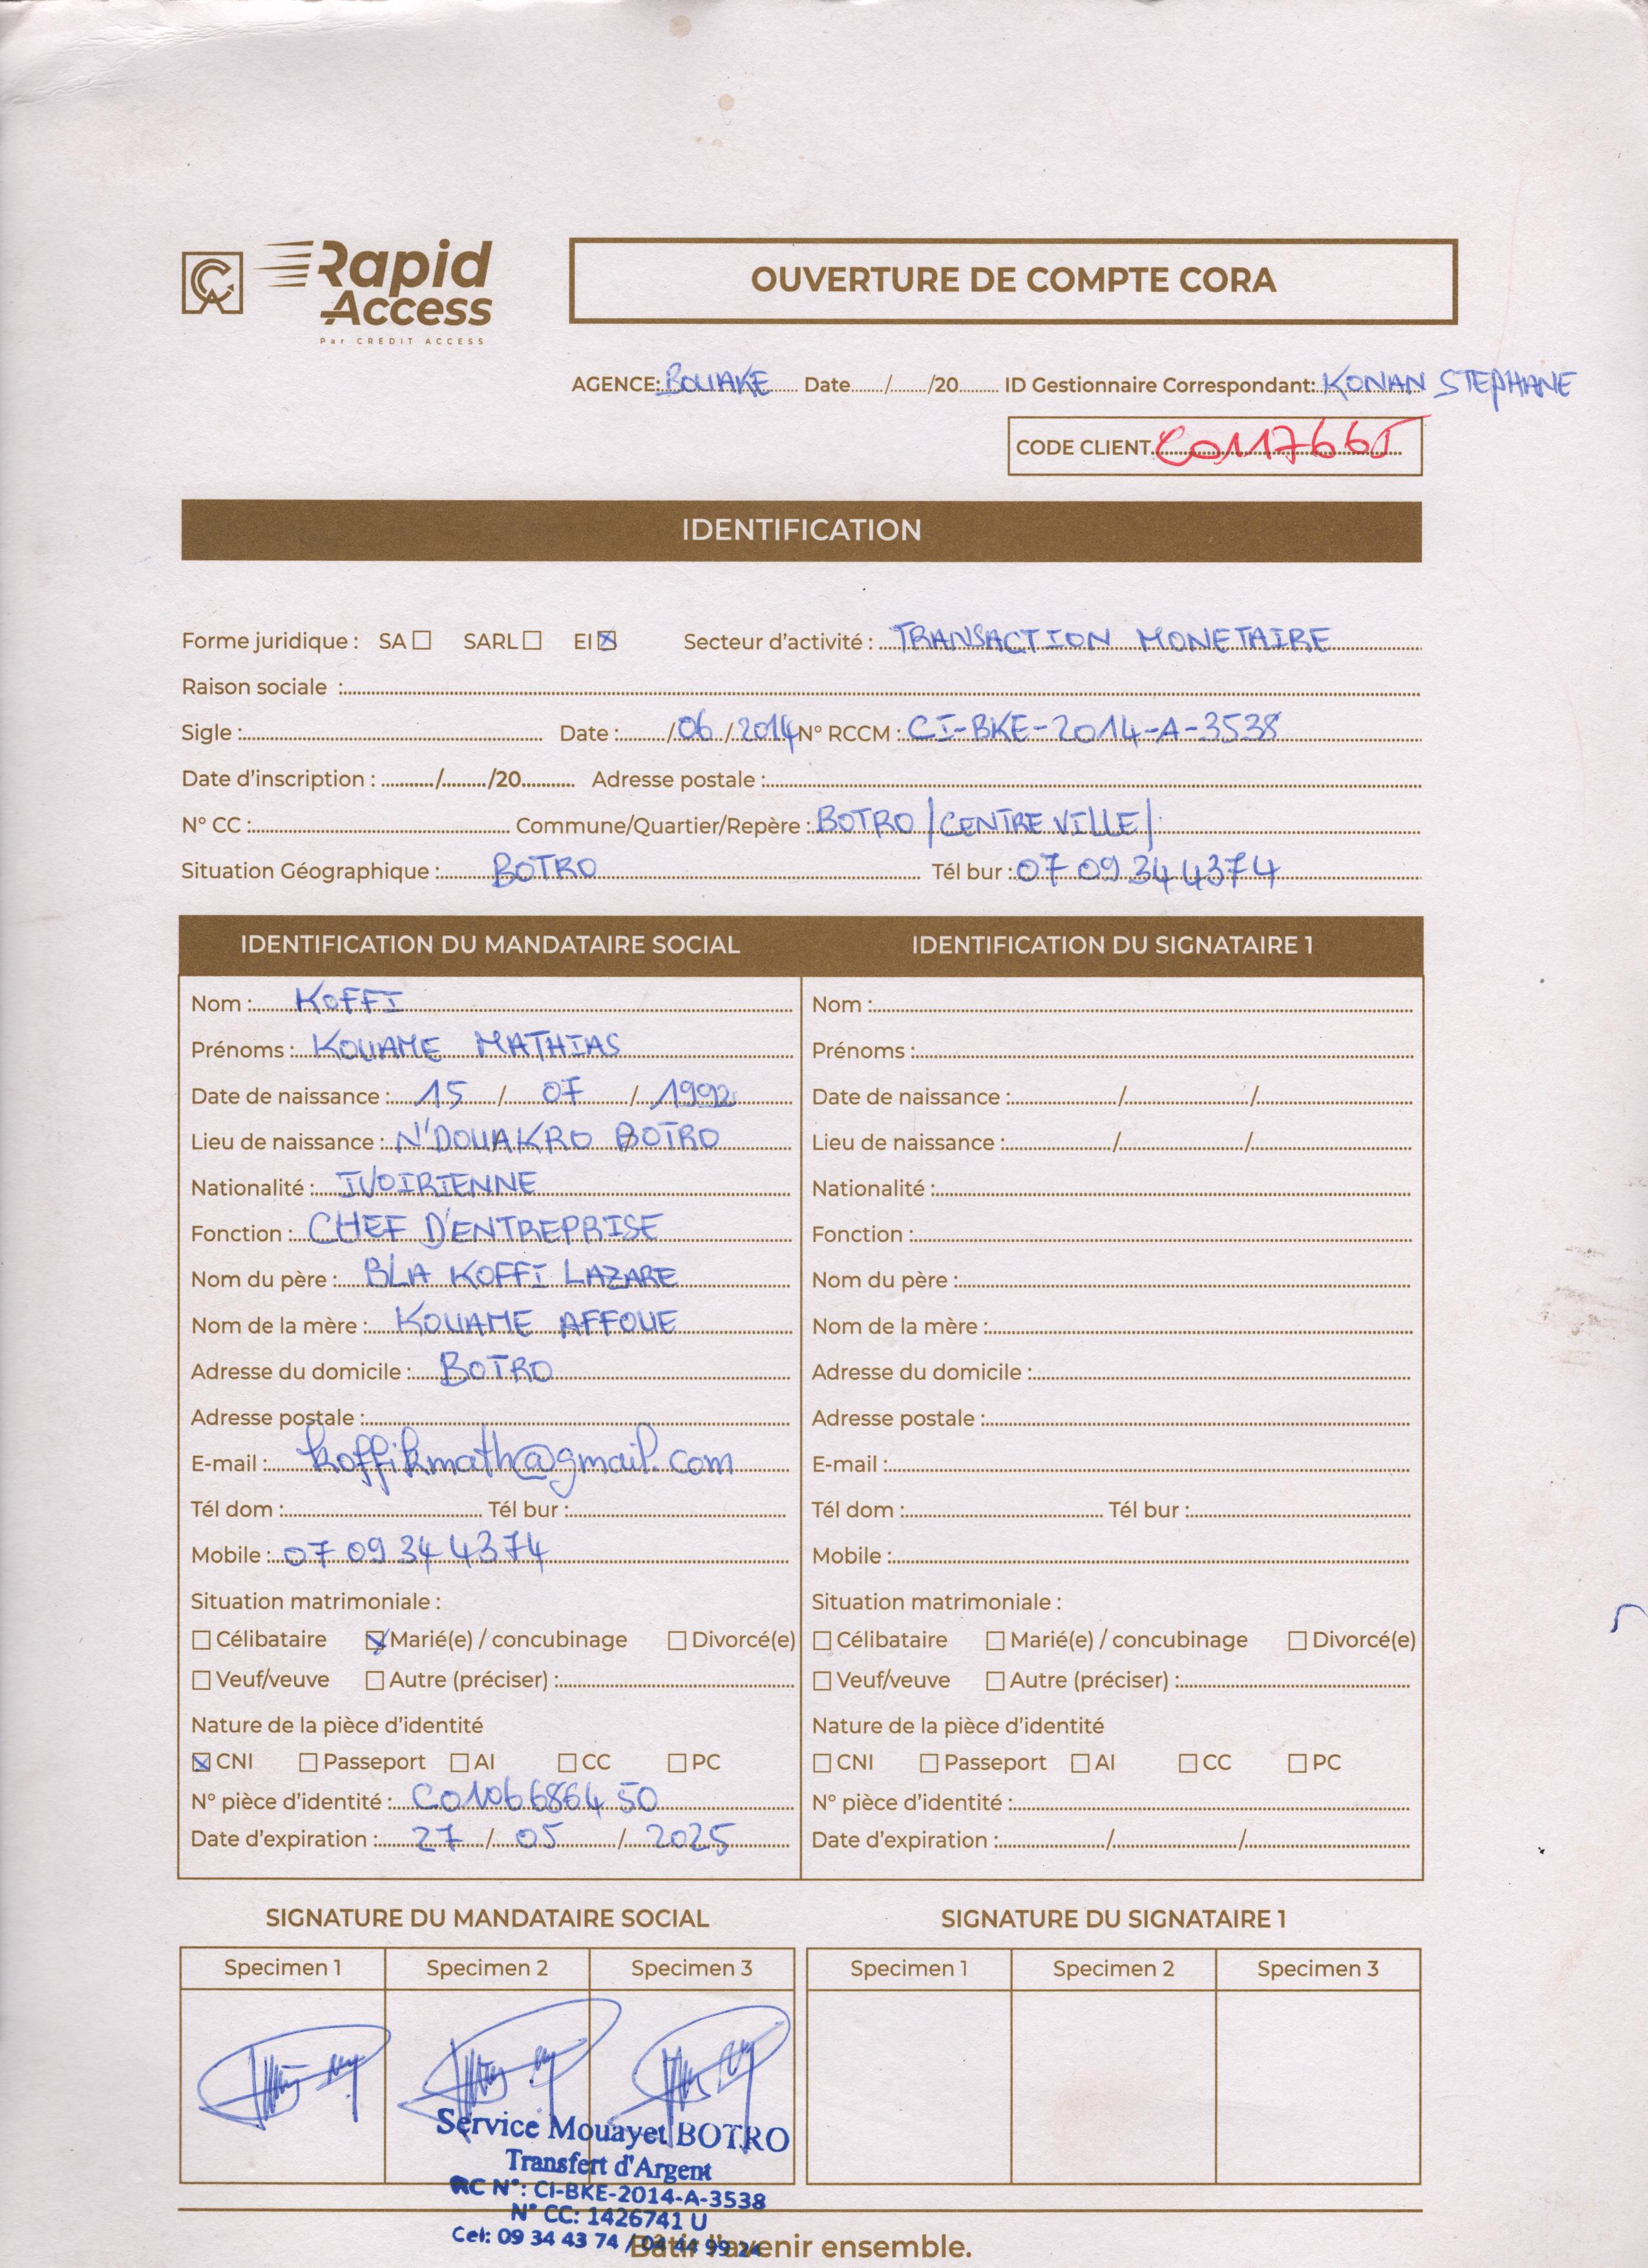 Rapid
Access
Par CREDIT ACCESS
OUVERTURE DE COMPTE CORA
AGENCE: BOUAKE Date....../....../20...... ID Gestionnaire Correspondant: KONAN STEPHANE
CODE CLIENT C0117665
IDENTIFICATION
Forme juridique : SA ☐ SARL ☐ EI ☒ Secteur d'activité : TRANSACTION MONETAIRE
Raison sociale :
Sigle : Date : ....../06/2014 N° RCCM : CI-BKE-2014-A-3538
Date d'inscription : ....../....../20...... Adresse postale :
N° CC : Commune/Quartier/Repère : BOTRO/CENTRE VILLE/
Situation Géographique : BOTRO Tél bur : 07 09 34 4374
IDENTIFICATION DU MANDATAIRE SOCIAL
Nom : KOFFI
Prénoms : KOUAME MATHIAS
Date de naissance : 15 / 07 / 1992
Lieu de naissance : N'DOUAKRO / BOTRO
Nationalité : IVOIRIENNE
Fonction : CHEF D'ENTREPRISE
Nom du père : BLA KOFFI LAZARE
Nom de la mère : KOUAME AFFOUE
Adresse du domicile : BOTRO
Adresse postale :
E-mail : koffikmath@gmail.com
Tél dom : Tél bur :
Mobile : 07 09 34 4374
Situation matrimoniale :
☐ Célibataire ☒ Marié(e) / concubinage ☐ Divorcé(e)
☐ Veuf/veuve ☐ Autre (préciser) :
Nature de la pièce d'identité
☒ CNI ☐ Passeport ☐ AI ☐ CC ☐ PC
N° pièce d'identité : C0106686450
Date d'expiration : 27 / 05 / 2025
IDENTIFICATION DU SIGNATAIRE 1
Nom :
Prénoms :
Date de naissance : / /
Lieu de naissance : / /
Nationalité :
Fonction :
Nom du père :
Nom de la mère :
Adresse du domicile :
Adresse postale :
E-mail :
Tél dom : Tél bur :
Mobile :
Situation matrimoniale :
☐ Célibataire ☐ Marié(e) / concubinage ☐ Divorcé(e)
☐ Veuf/veuve ☐ Autre (préciser) :
Nature de la pièce d'identité
☐ CNI ☐ Passeport ☐ AI ☐ CC ☐ PC
N° pièce d'identité :
Date d'expiration : / /
SIGNATURE DU MANDATAIRE SOCIAL
Specimen 1 Specimen 2 Specimen 3
Service Mouayet BOTRO
Transfert d'Argent
RC N°: CI-BKE-2014-A-3538
N° CC: 1426741 U
Cel: 09 34 43 74 / 04 44 99 24
SIGNATURE DU SIGNATAIRE 1
Specimen 1 Specimen 2 Specimen 3
Bâtir l'avenir ensemble.